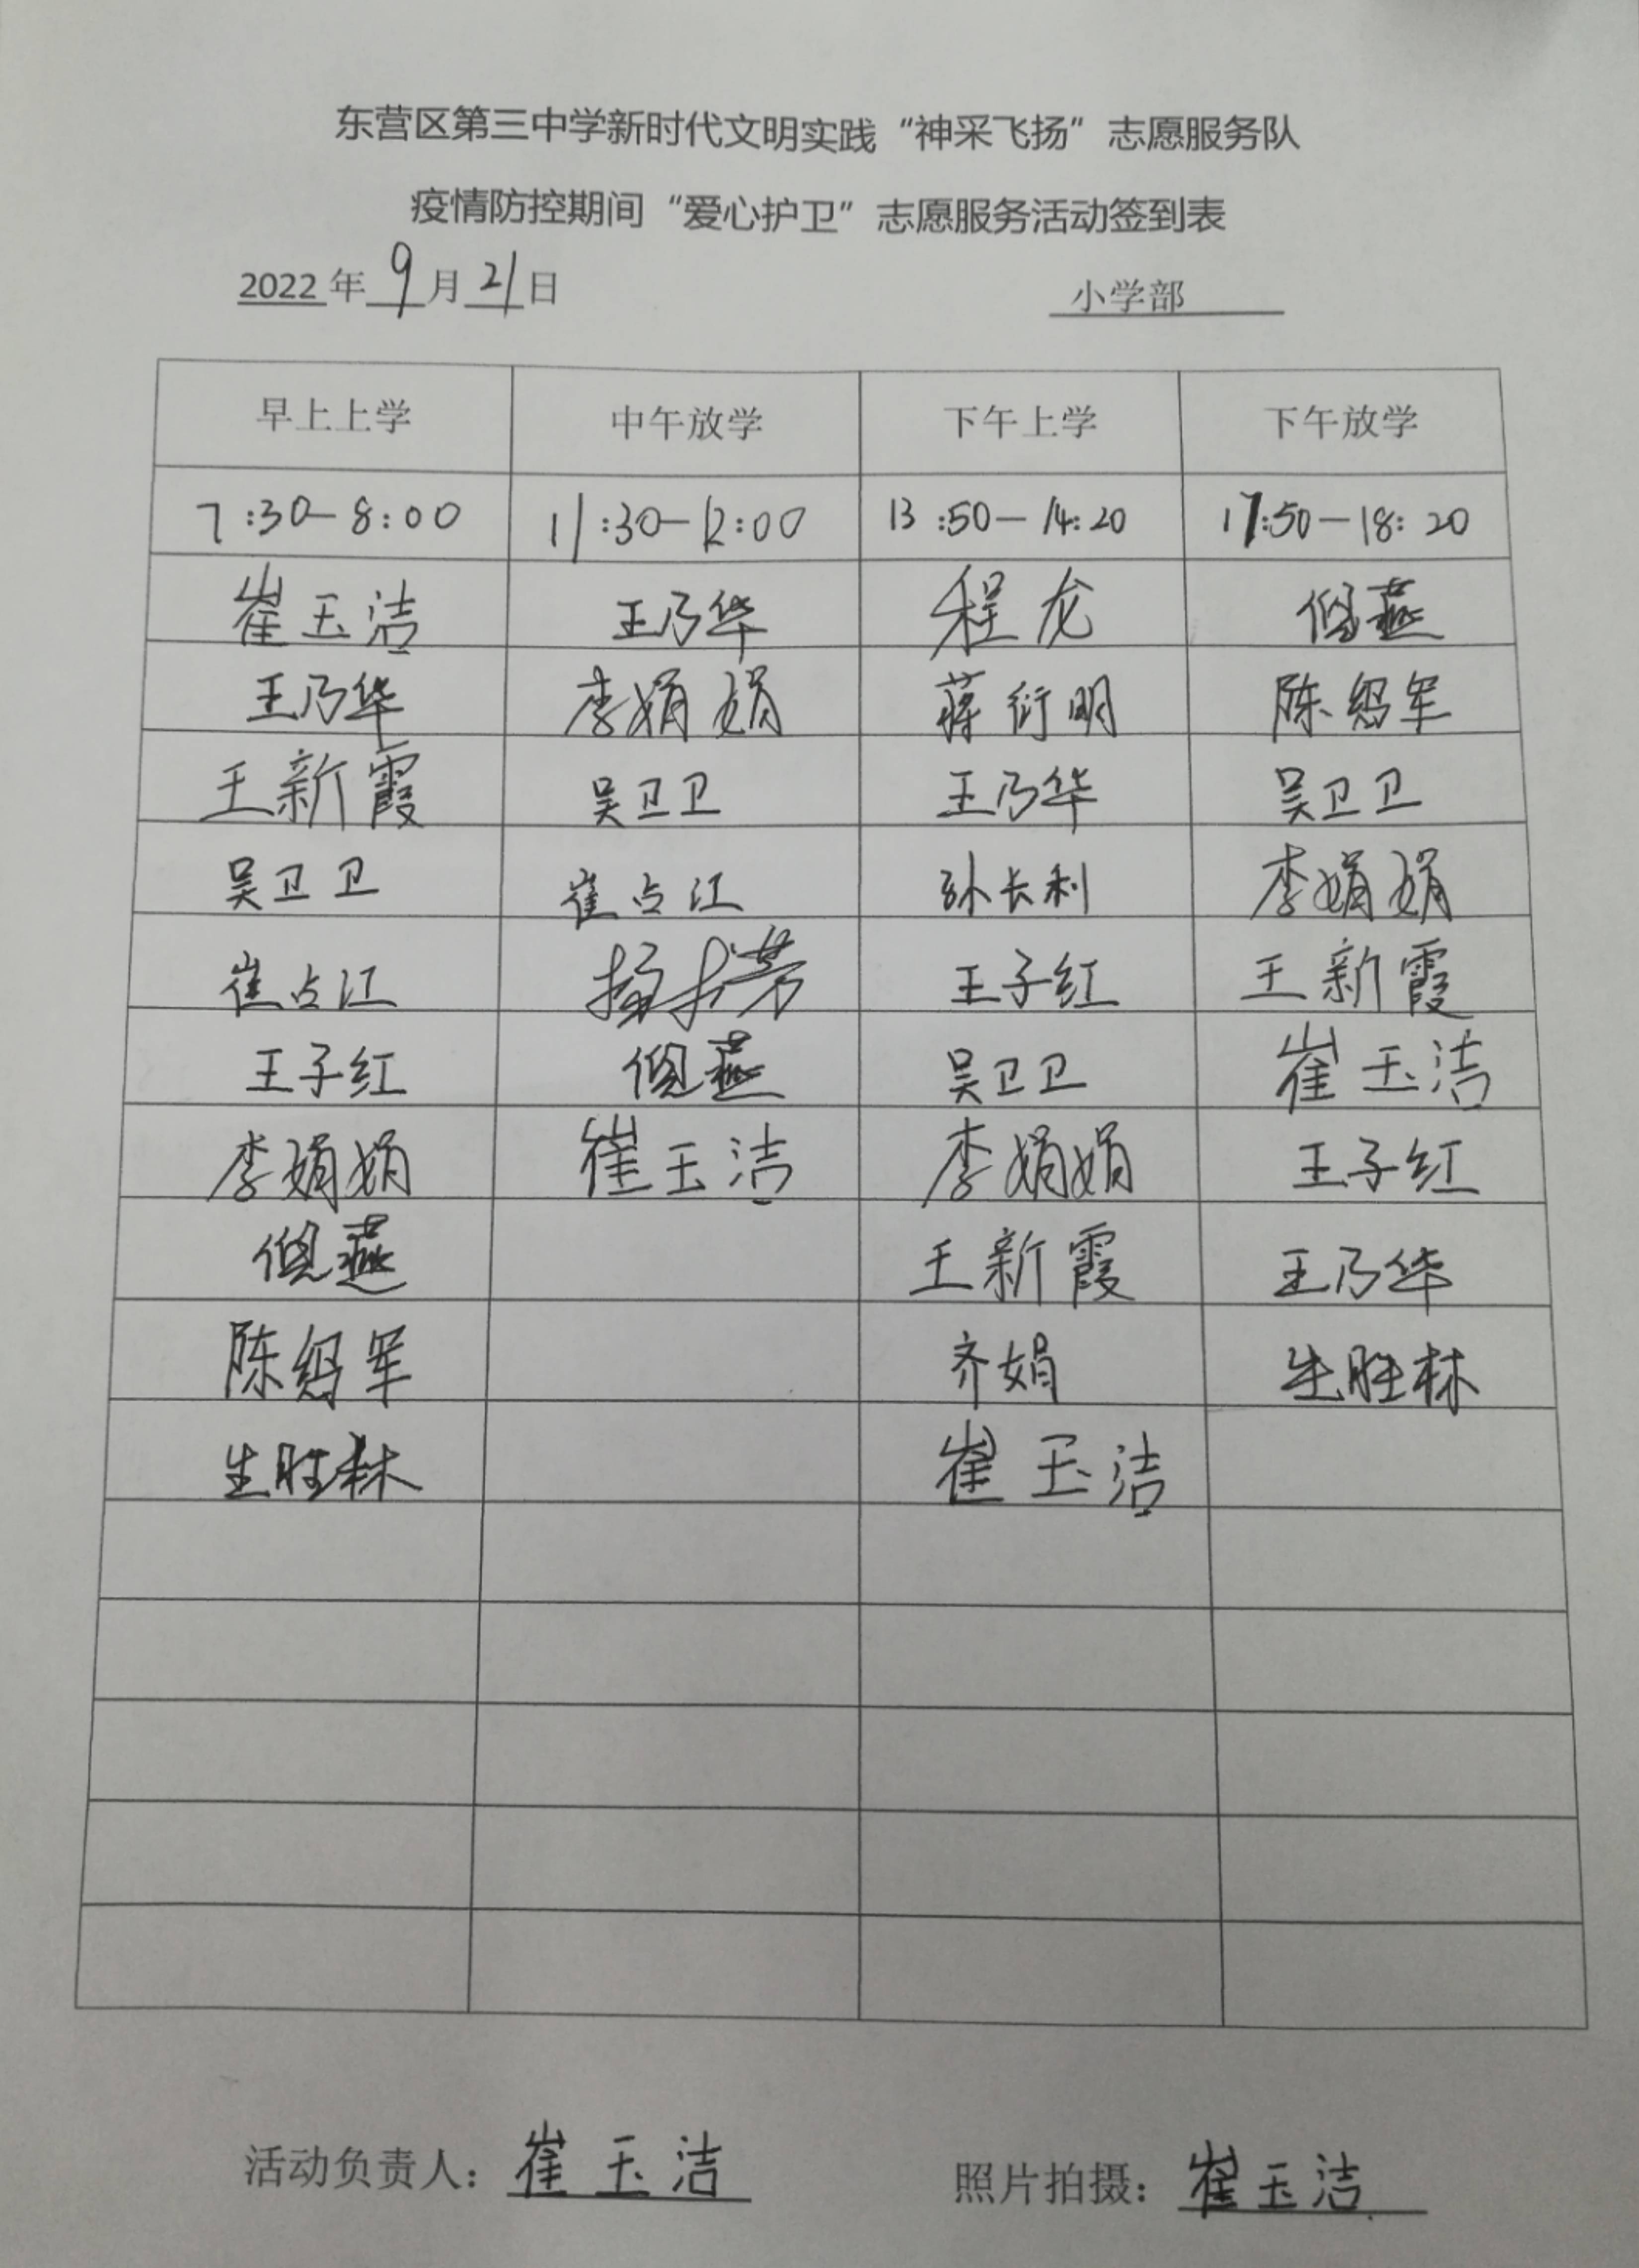 东营区第三中学新时代文明实践“神采飞扬”志愿服务队
疫情防控期间“爱心护卫”志愿服务活动签到表
2022年9月21日 小学部
早上上学 中午放学 下午上学 下午放学
7:30-8:00 11:30-12:00 13:50-14:20 17:50-18:20
崔玉洁 王乃华 程龙 倪燕
王乃华 李娟娟 蒋衍明 陈绍军
王新霞 吴卫卫 王乃华 吴卫卫
吴卫卫 崔占江 孙长利 李娟娟
崔占江 王子红 王新霞
王子红 倪燕 吴卫卫 崔玉洁
李娟娟 崔玉洁 李娟娟 王子红
倪燕 王新霞 王乃华
陈绍军 齐娟 生胜林
生胜林 崔玉洁
活动负责人：崔玉洁 照片拍摄：崔玉洁